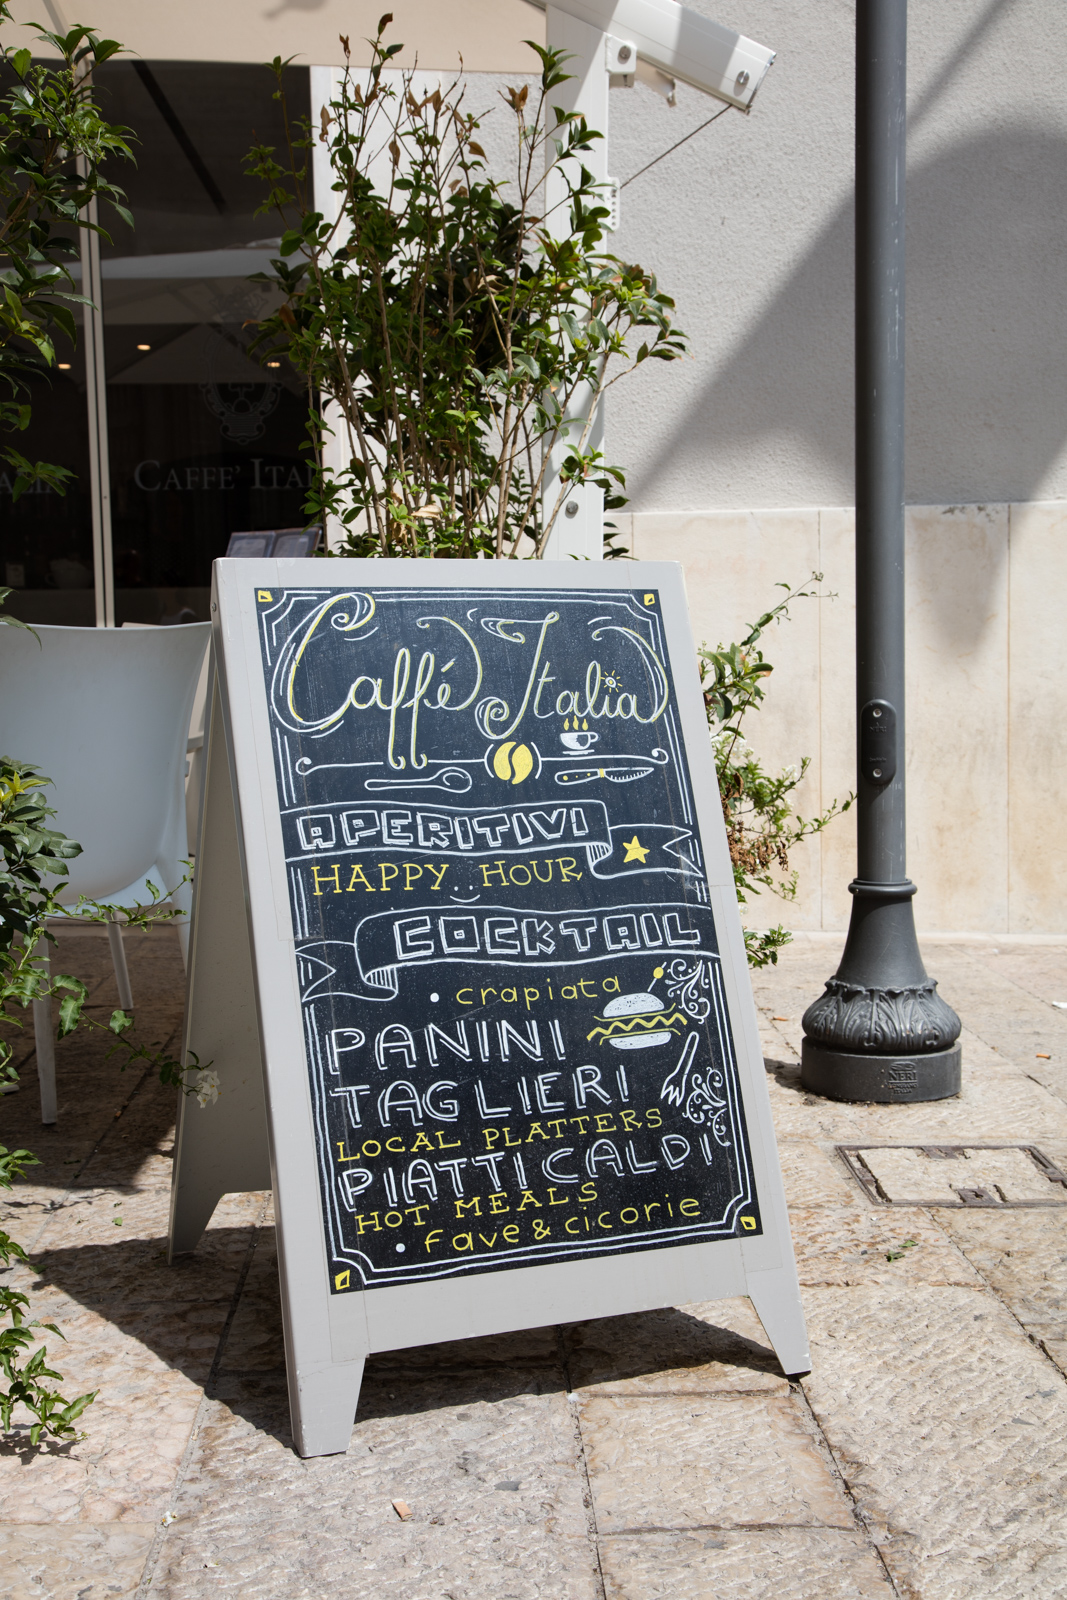 CAFFE' ITAL
Caffé Italia
APERITIVI
HAPPY HOUR
COCKTAIL
• crapiata
PANINI
TAGLIERI
LOCAL PLATTERS
PIATTI CALDI
HOT MEALS
• fave & cicorie
NERI